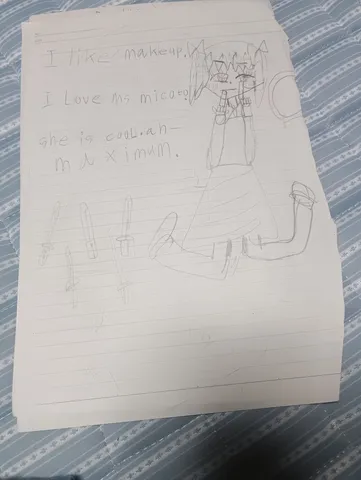 I like makeup.
I Love ms
she is cool.an-
maximum.